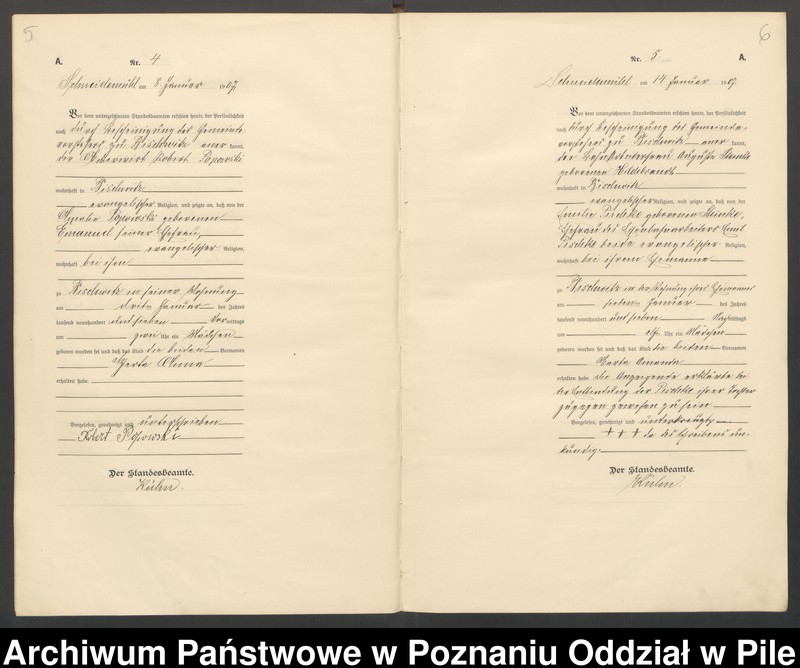 5
A.
Nr. 4
Schneidemühl am 8 Januar 1907
Vor dem unterzeichneten Standesbeamten erschien heute, der Persönlichkeit
nach durch Bescheinigung des Gemeinde-
vorstehers zu aner kannt,
der Robert
wohnhaft in
evangelischer Religion, und zeigte an, daß von der
Amalie geborenen
Emanuel seiner Ehefrau,
evangelischer Religion,
wohnhaft bei ihm
zu in seiner Wohnung
am dritten Januar des Jahres
tausend neunhundert und sieben Vormittags
um zwei Uhr ein Mädchen
geboren worden sei und daß das Kind die beiden Vornamen
Herta
erhalten habe.
Vorgelesen, genehmigt und unterschrieben
Robert
Der Standesbeamte.
Kühn.
6
Nr. 5.
A.
Schneidemühl am 14 Januar 1907.
Vor dem unterzeichneten Standesbeamten erschien heute, der Persönlichkeit
nach durch Bescheinigung des Gemeinde-
vorstehers zu aner kannt,
die Auguste
geborenen Hildebrandt
wohnhaft in
evangelischer Religion, und zeigte an, daß von der
Emilie geborenen
Ehefrau des Emil
beide evangelischer Religion,
wohnhaft bei ihrem Ehemanne
zu in der Wohnung ihres Ehemannes
am sieben Januar des Jahres
tausend neunhundert und sieben Nachmittags
um elf Uhr ein Mädchen
geboren worden sei und daß das Kind die beiden Vornamen
Marta Amanda
erhalten habe. Die Anzeigende erklärte bei
der Entbindung der ihrer Tochter
zugegen gewesen zu sein
Vorgelesen, genehmigt und unterkreuzt
+++ da des Schreibens un-
kundig.
Der Standesbeamte.
Kühn.
Archiwum Państwowe w Poznaniu Oddział w Pile